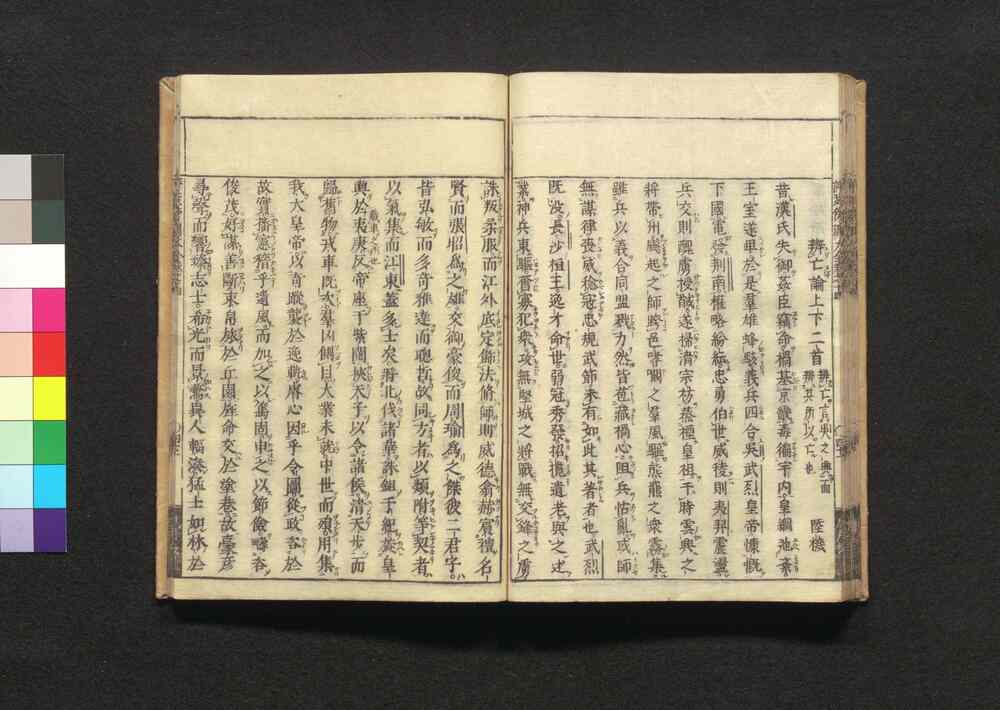 辨亡論上下二首 辨亡言呉之興亡而
辨其所以亡也 陸機
昔漢氏失御姦臣竊命禍基京畿毒徧宇内皇綱弛紊
王室遂卑於是羣雄蜂駭義兵四合呉武烈皇帝慷慨
下國電發荆南權略紛紜忠勇伯世威稜則夷羿震盪
兵交則醜虜授馘遂掃清宗祊蒸禋皇祖于時雲興之
將帶州飇起之師跨邑哮闞之羣風驅熊羆之衆霧集
雖兵以義合同盟戮力然皆苞藏禍心阻兵怙亂或師
無謀律喪威稔寇忠規武節未有如此其著者也武烈
既没長沙桓王逸才命世弱冠秀發招攬遺老與之述
業神兵東驅奮寡犯衆攻無堅城之將戰無交鋒之虜
誅叛柔服而江外底定飾法脩師則威德翕赫賓禮名
賢而張昭爲之雄交御豪俊而周瑜爲之傑彼二君子
皆弘敏而多奇雅達而聰哲故同方者以類附等契者
以氣集而江東蓋多士矣將北伐諸華誅鉏干紀旋皇
輿於夷庚反帝座于紫闥挾天子以令諸侯清天步而
歸舊物戎車既次羣凶側目大業未就中世而殞用集
我大皇帝以奇蹤襲於逸軌叡心因乎令圖從政咨於
故實播憲稽乎遺風而加之以篤固申之以節儉疇咨
俊茂好謀善斷束帛旅於丘園旌命交於塗巷故豪彦
尋聲而響臻志士希光而景騖異人輻湊猛士如林於